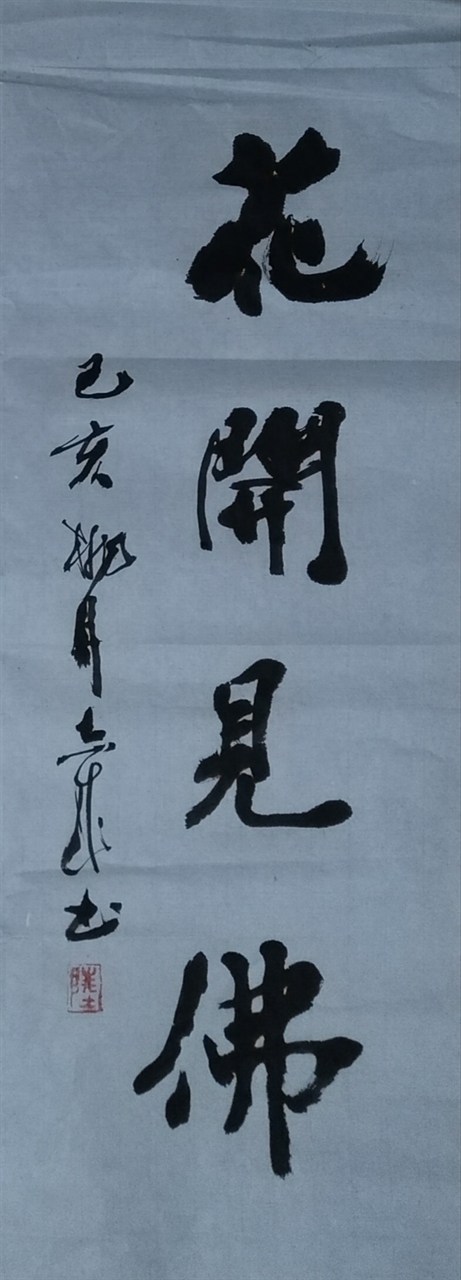 花開見佛
己亥桃月
書